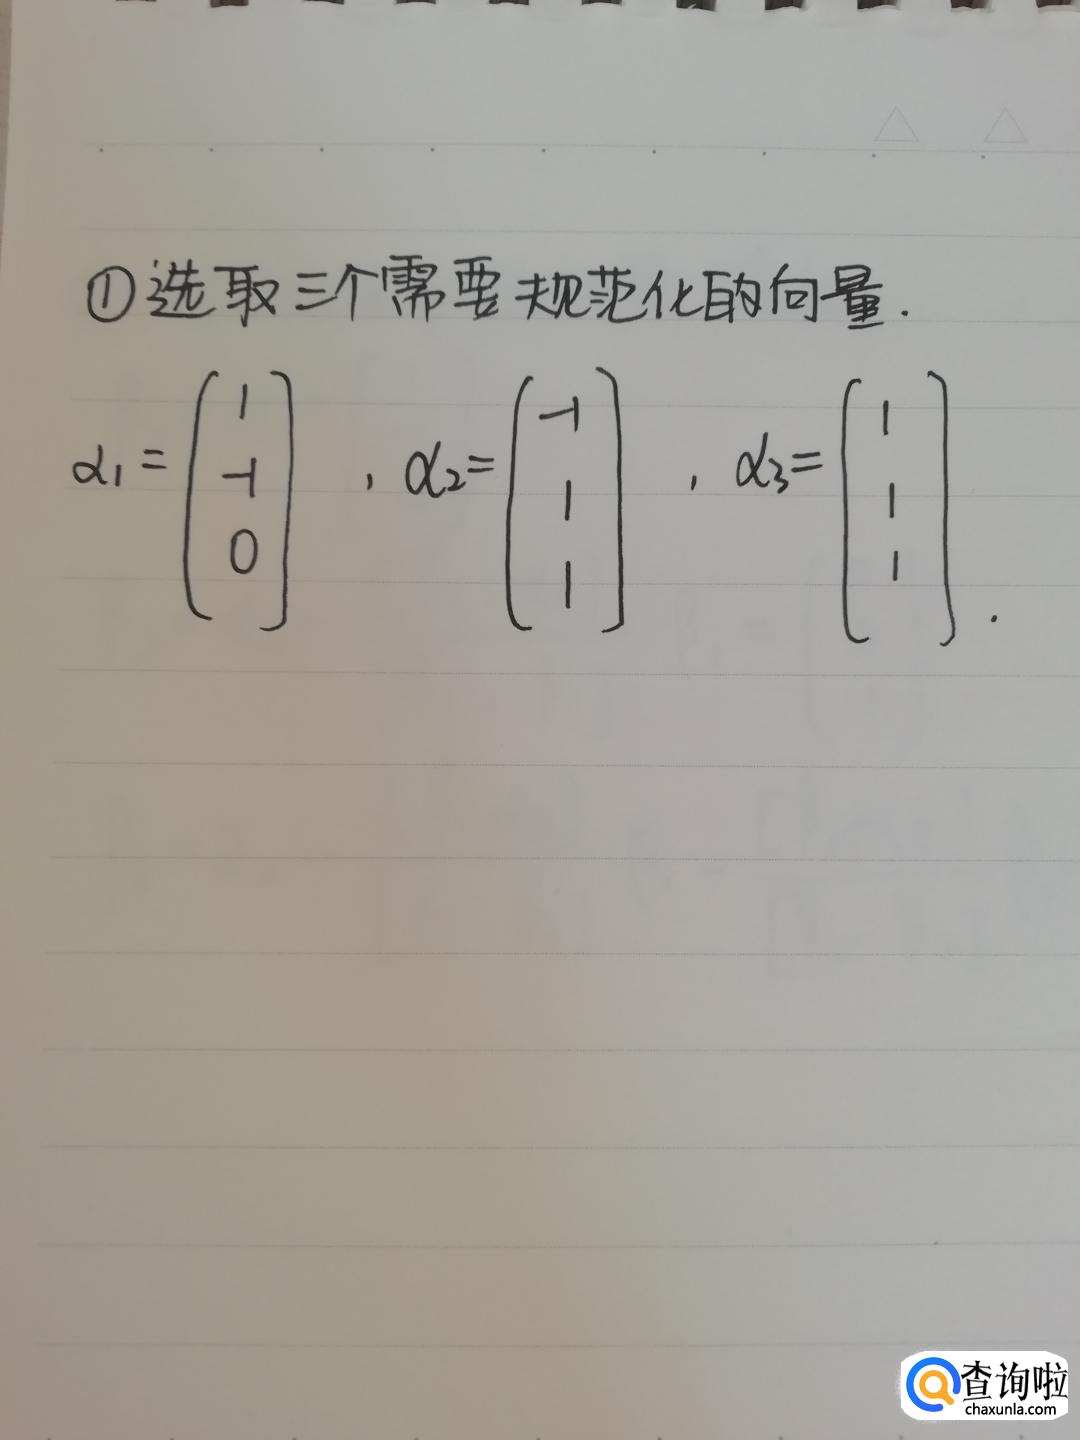 ①选取三个需要规范化的向量.
α₁=(1 -1 0) , α₂=(-1 1 1) , α₃=(1 1 1) .
查询啦
chaxunla.com